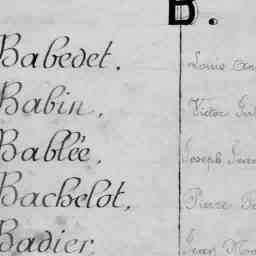 B.
Babedet, Louis
Babin, Victor
Bablée, Joseph
Bachelot, Pierre
Badier, Jean